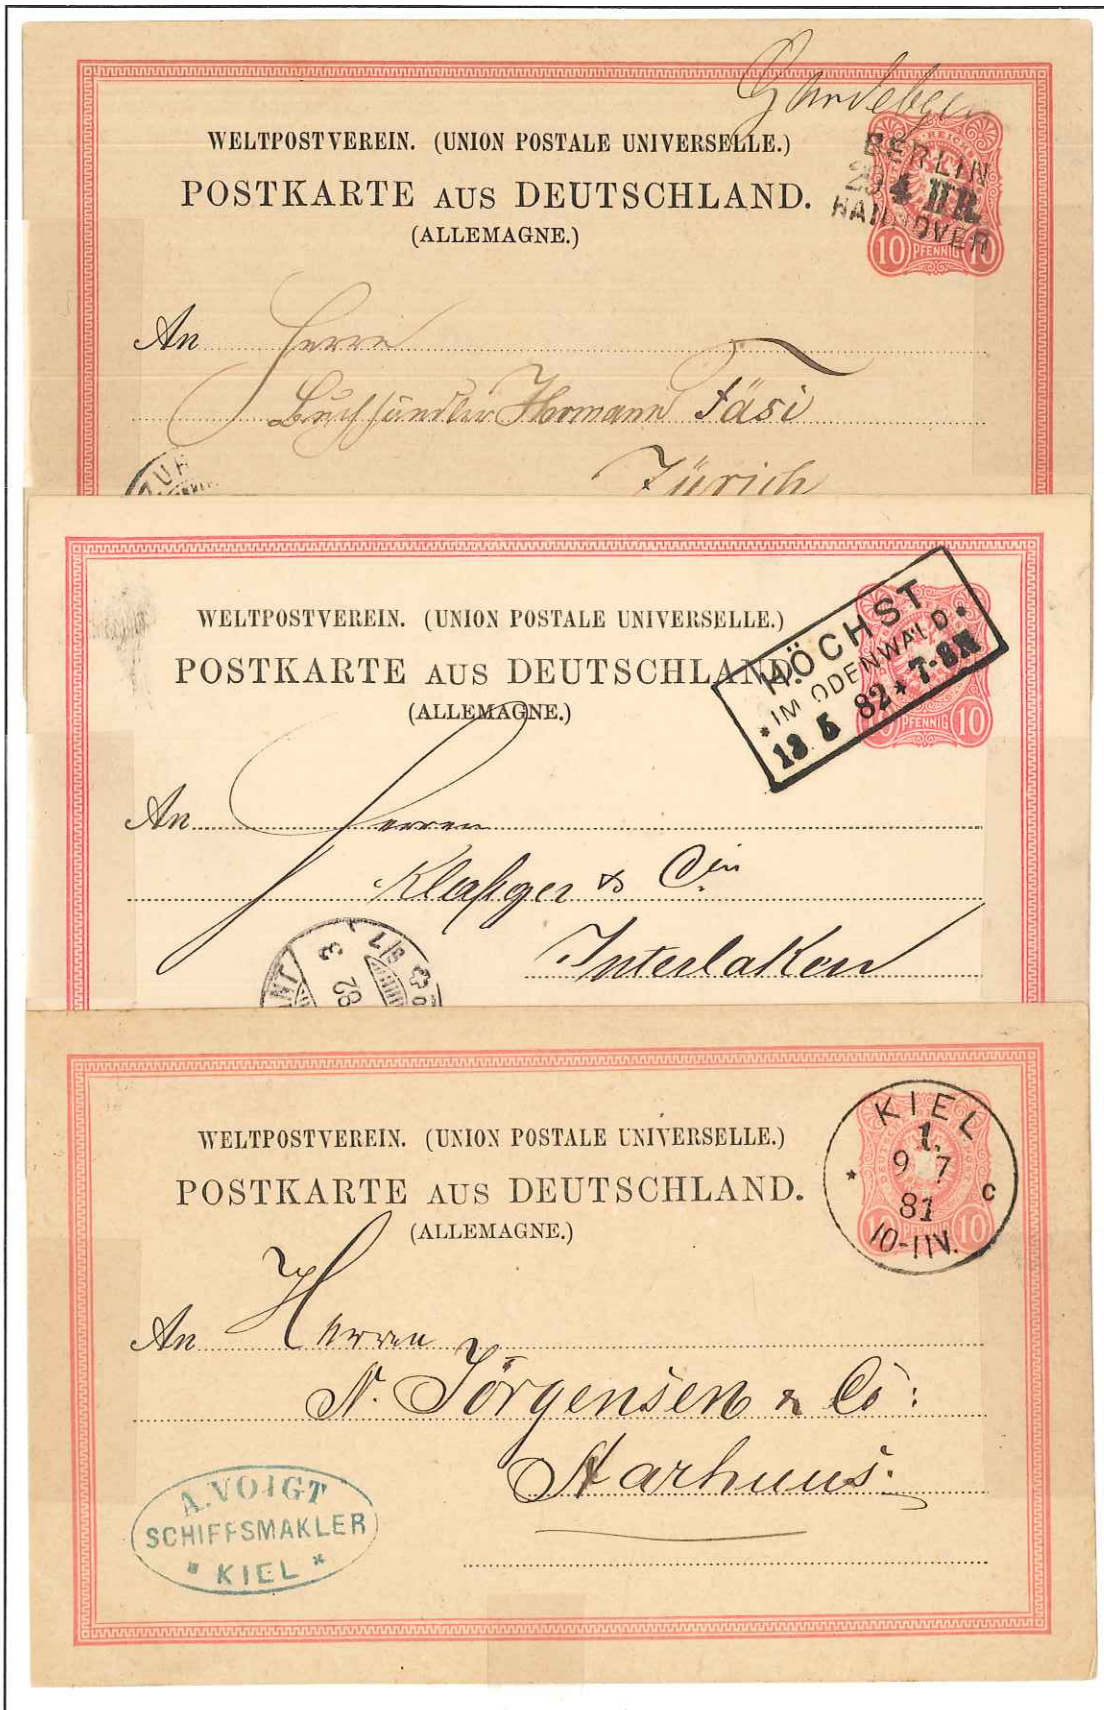 WELTPOSTVEREIN. (UNION POSTALE UNIVERSELLE.)
POSTKARTE AUS DEUTSCHLAND.
(ALLEMAGNE.)
BERLIN
29 4 II R.
HANNOVER
10 PFENNIG 10
An Herrn
Buchhändler Hermann Fäsi
Zürich
ZUR
WELTPOSTVEREIN. (UNION POSTALE UNIVERSELLE.)
POSTKARTE AUS DEUTSCHLAND.
(ALLEMAGNE.)
HÖCHST
* IM ODENWALD. *
13 5 82 * 7-8N
10 PFENNIG 10
An Herren
& Cie
Interlaken
82 3
WELTPOSTVEREIN. (UNION POSTALE UNIVERSELLE.)
POSTKARTE AUS DEUTSCHLAND.
(ALLEMAGNE.)
KIEL
1.
9 7
81
10-11V.
* C
10 PFENNIG 10
An Herren
N. Jörgensen & Co:
Aarhuus.
A. VOIGT
SCHIFFSMAKLER
* KIEL *